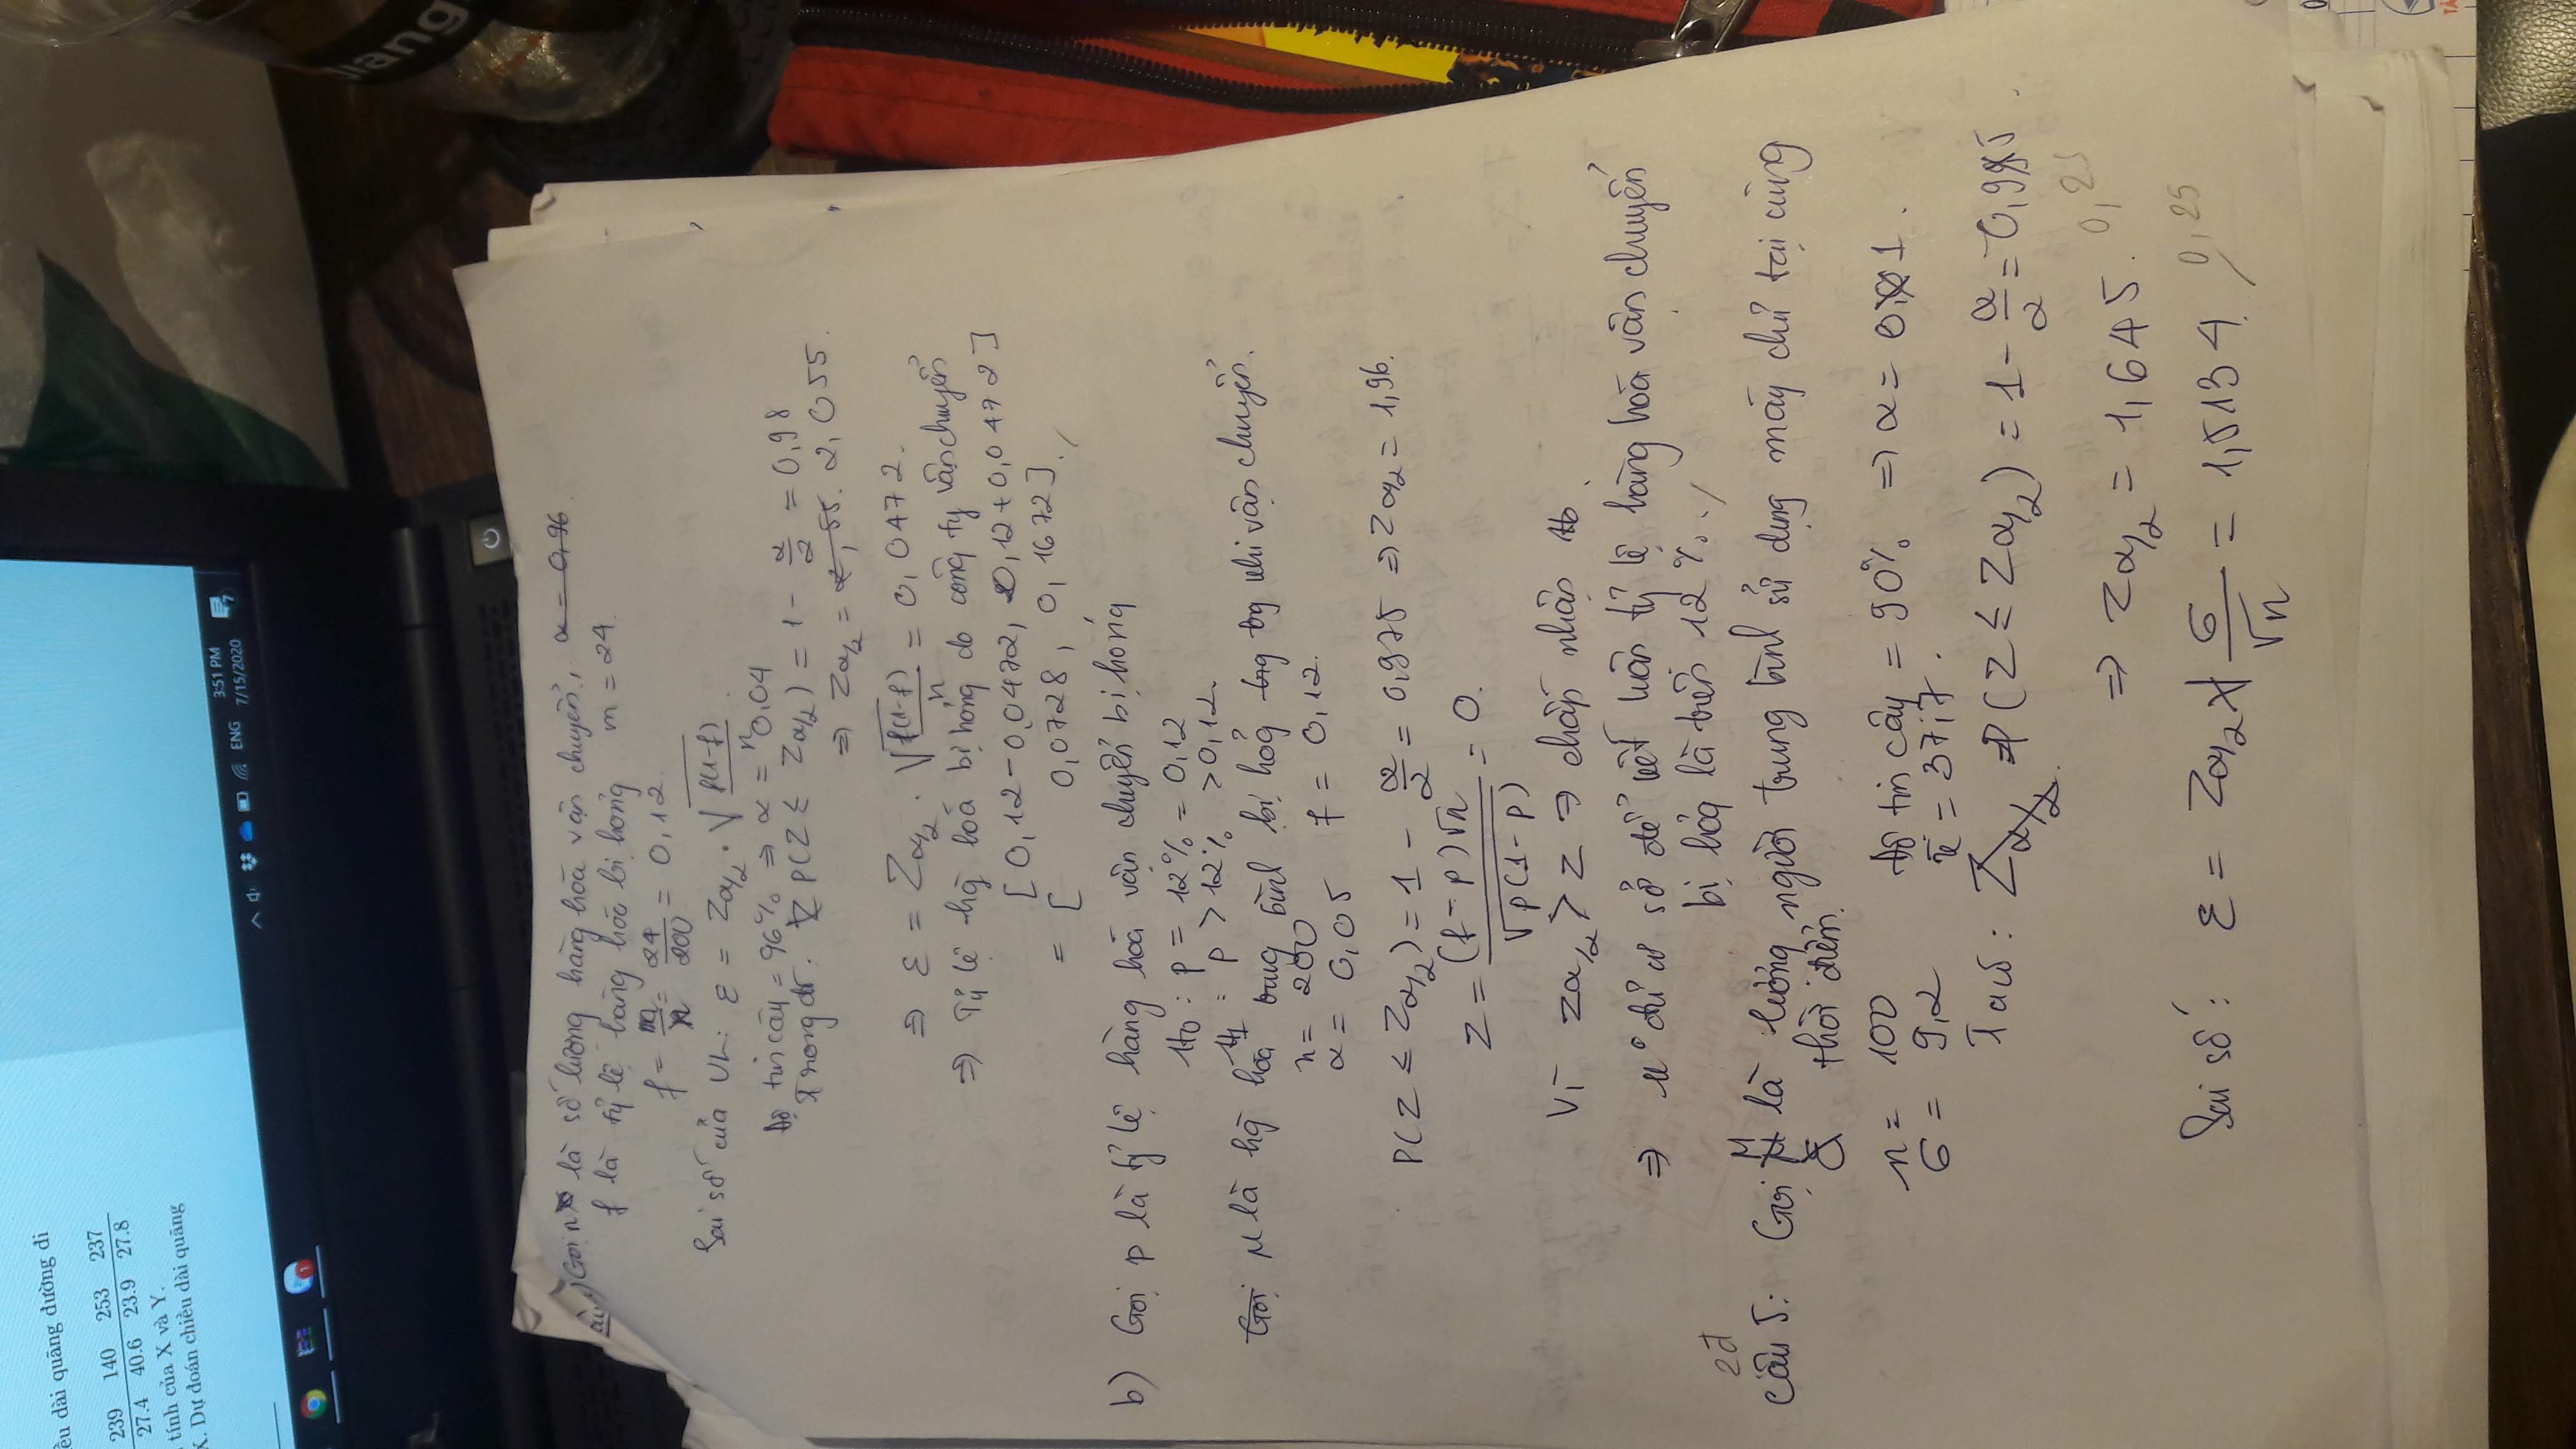 ều dài quãng đường đi
239 140 253 237
27.4 40.6 23.9 27.8
tính của X và Y.
X. Dự đoán chiều dài quãng
ENG
3:51 PM
7/15/2020
7
1
iang
Gọi n là số lượng hàng hóa vận chuyển, α = 0,96
f là tỷ lệ hàng hóa bị hỏng m = 24.
f = m/n = 24/200 = 0,12.
Sai số của UL: ε = Zα/2 . √f(1-f)/n
Độ tin cậy = 96% ⇒ α = 0,04
Trong đó: P(Z ≤ Zα/2) = 1 - α/2 = 0,98
⇒ Zα/2 = 2,55. 2,055.
⇒ ε = Zα/2 . √f(1-f)/n = 0,0472.
⇒ Tỷ lệ hg hoá bị hỏng do công ty vận chuyển
[0,12-0,0472, 0,12+0,0472]
= [ 0,0728, 0,1672].
b) Gọi p là tỷ lệ hàng hoá vận chuyển bị hỏng
H0 : p = 12% = 0,12
H1 : p > 12% > 0,12.
Gọi μ là hg hoá trung bình bị hỏg trg khi vận chuyển.
n = 200
α = 0,05 f = 0,12.
P(Z ≤ Zα/2) = 1 - α/2 = 0,975 ⇒ Zα/2 = 1,96.
Z = (f-p)√n / √p(1-p) = 0.
Vì Zα/2 > Z ⇒ chấp nhận H0
⇒ ko đủ cơ sở để kết luận tỷ lệ hàng hoá vận chuyển
bị hỏg là trên 12%.
2đ
Câu 5: Gọi M là lượng người trung bình sử dụng máy chủ tại cùng
thời điểm.
n = 100 Độ tin cậy = 90% ⇒ α = 0,1.
σ = 9,2 x̄ = 37,7.
Ta có: Zα/2 P(Z ≤ Zα/2) = 1 - α/2 = 0,95.
⇒ Zα/2 = 1,645. 0,25
Sai số: ε = Zα/2 × σ/√n = 1,5134. 0,25